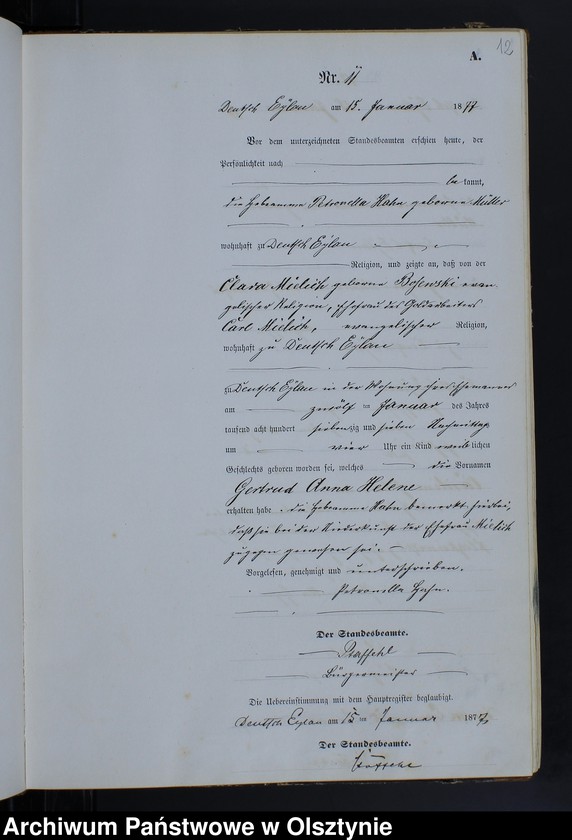 12
A.
Nr. 11
Deutsch Eylau am 15. Januar 1877
Vor dem unterzeichneten Standesbeamten erschien heute, der
Persönlichkeit nach
be kannt,
die Hebeamme Petronella Hahn geborene Müller
wohnhaft zu Deutsch Eylau
Religion, und zeigte an, daß von der
Clara Mielich geborene evan
gelischer Religion, Ehefrau des Goldarbeiters
Carl Mielich, evangelischer Religion,
wohnhaft zu Deutsch Eylau
zu Deutsch Eylau in der Wohnung ihres Ehemannes
am zwölf ten Januar des Jahres
tausend acht hundert siebenzig und sieben Nachmittags
um vier Uhr ein Kind weib lichen
Geschlechts geboren worden sei, welches die Vornamen
Gertrud Anna Helene
erhalten habe. die Hebeamme Hahn bemerkt hierbei,
daß sie bei der Niederkunft der Ehefrau Mielich
zugegen gewesen sei.
Vorgelesen, genehmigt und unterschrieben.
Petronella Hahn.
Der Standesbeamte.
Bürgermeister
Die Uebereinstimmung mit dem Hauptregister beglaubigt.
Deutsch Eylau am 15 ten Januar 1877
Der Standesbeamte.
Archiwum Państwowe w Olsztynie